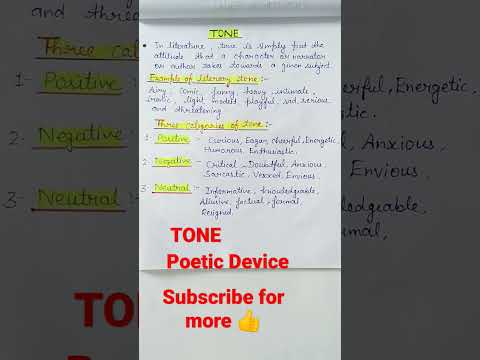 TONE
In literature, tone is simply just the
attitude that a character or narrator
or author takes towards a given subject.
Example of literary tone :-
Airy, Comic, funny, heavy, intimate,
ironic, light, modest, playful, sad, serious
and threatening.
Three categories of tone :-
1. Positive :- Curious, Eager, Cheerful, Energetic,
Humorous, Enthusiastic.
2. Negative :- Critical, Doubtful, Anxious,
Sarcastic, Vexed, Envious.
3. Neutral :- Informative, knowledgeable,
Allusive, factual, formal,
Resigned.
TONE
Poetic Device
Subscribe for
more 👍
and threa
Three categ
1- Positive
2- Negative
3- Neutral :-
erful, Energetic,
l, Anxious,
Envious.
ledgeable,
mal,
TON